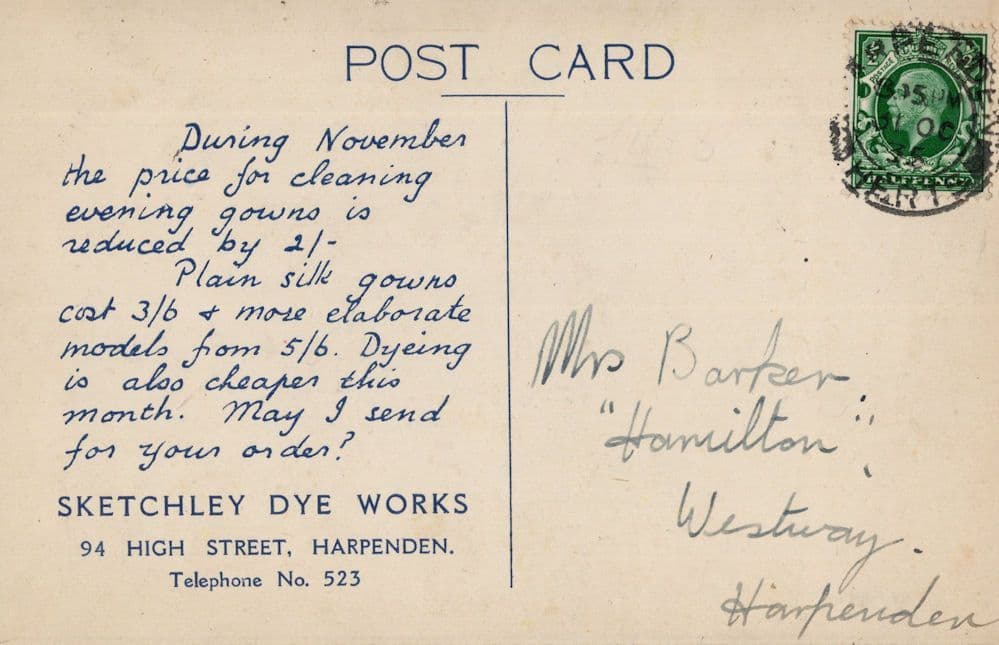 POST CARD
During November
the price for cleaning
evening gowns is
reduced by 2/-
Plain silk gowns
cost 3/6 & more elaborate
models from 5/6. Dyeing
is also cheaper this
month. May I send
for your order?
SKETCHLEY DYE WORKS
94 HIGH STREET, HARPENDEN.
Telephone No. 523
Mrs Barker
"Hamilton",
Westway.
Harpenden
POSTAGE
HALFPENNY
HARPENDEN
PM
31 OC
HERTS